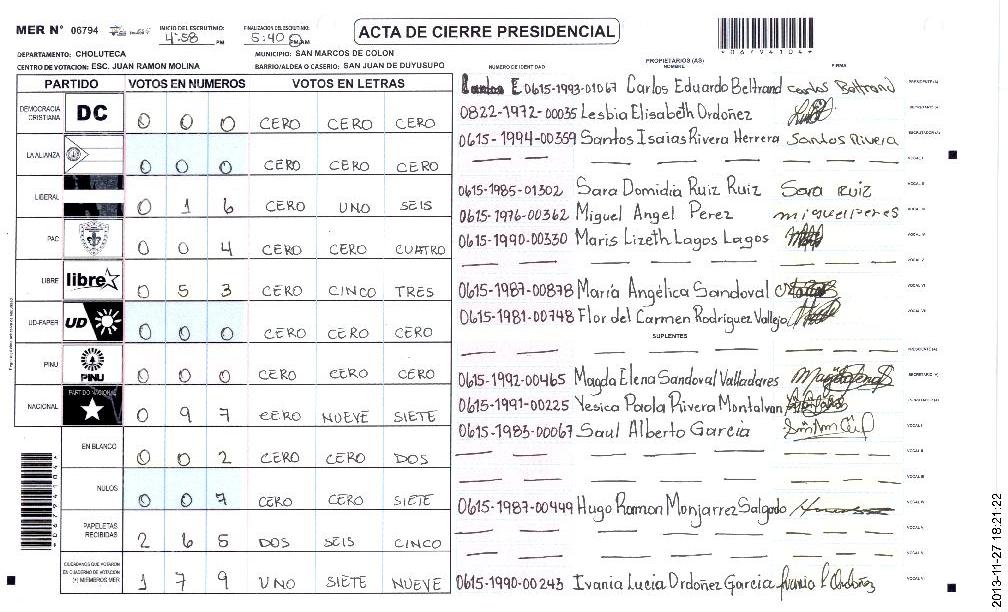 MER N° 06794
INICIO DEL ESCRUTINIO: 4:58 PM
FINALIZACION DEL ESCRUTINIO: 5:40 PM AM
ACTA DE CIERRE PRESIDENCIAL
*06794104*
DEPARTAMENTO: CHOLUTECA
MUNICIPIO: SAN MARCOS DE COLON
CENTRO DE VOTACION: ESC. JUAN RAMON MOLINA
BARRIO/ALDEA O CASERIO: SAN JUAN DE DUYUSUPO
PARTIDO VOTOS EN NUMEROS VOTOS EN LETRAS
DEMOCRACIA CRISTIANA DC 0 0 0 CERO CERO CERO
LA ALIANZA 0 0 0 CERO CERO CERO
LIBERAL 0 1 6 CERO UNO SEIS
PAC 0 0 4 CERO CERO CUATRO
LIBRE libre 0 5 3 CERO CINCO TRES
UD-FAPER UD 0 0 0 CERO CERO CERO
PINU PINU 0 0 0 CERO CERO CERO
NACIONAL PARTIDO NACIONAL 0 9 7 CERO NUEVE SIETE
EN BLANCO 0 0 2 CERO CERO DOS
NULOS 0 0 7 CERO CERO SIETE
PAPELETAS RECIBIDAS 2 6 5 DOS SEIS CINCO
CIUDADANOS QUE VOTARON EN CUADERNO DE VOTACION (+) MIEMBROS MER 1 7 9 UNO SIETE NUEVE
NUMERO DE IDENTIDAD PROPIETARIOS (AS) NOMBRE FIRMA
0615-1993-01067 Carlos Eduardo Beltrand Carlos Beltrand PRESIDENTE (A)
0822-1972-00035 Lesbia Elisabeth Ordoñez SECRETARIO (A)
0615-1994-00359 Santos Isaias Rivera Herrera Santos Rivera ESCRUTADOR (A)
VOCAL I
0615-1985-01302 Sara Domidia Ruiz Ruiz Sara Ruiz VOCAL II
0615-1976-00362 Miguel Angel Perez miguel peres VOCAL III
0615-1990-00330 Maris Lizeth Lagos Lagos VOCAL IV
VOCAL V
0615-1987-00878 María Angélica Sandoval VOCAL VI
0615-1981-00748 Flor del Carmen Rodriguez Vallejo VOCAL VII
SUPLENTES
PRESIDENTE (A)
0615-1992-00465 Magda Elena Sandoval Valladares SECRETARIO (A)
0615-1991-00225 Yesica Paola Rivera Montalvan ESCRUTADOR (A)
0615-1983-00067 Saul Alberto Garcia VOCAL I
VOCAL II
VOCAL III
0615-1987-00449 Hugo Ramon Monjarrez Salgado VOCAL IV
VOCAL V
VOCAL VI
0615-1990-00243 Ivania Lucia Ordoñez Garcia Ivania L Ordoñez VOCAL VII
2013-11-27 18:21:22